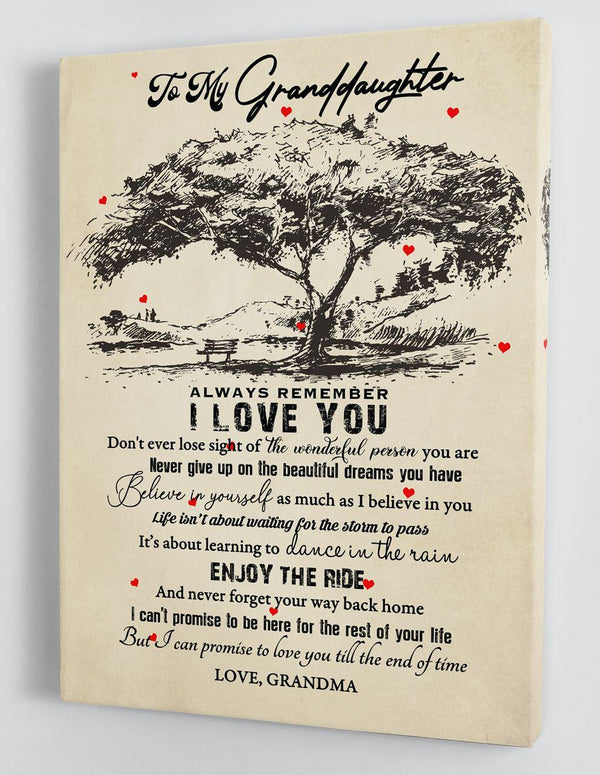 To My Granddaughter
ALWAYS REMEMBER
I LOVE YOU
Don't ever lose sight of the wonderful person you are
Never give up on the beautiful dreams you have
Believe in yourself as much as I believe in you
Life isn't about waiting for the storm to pass
It's about learning to dance in the rain
ENJOY THE RIDE
And never forget your way back home
I can't promise to be here for the rest of your life
But I can promise to love you till the end of time
LOVE, GRANDMA